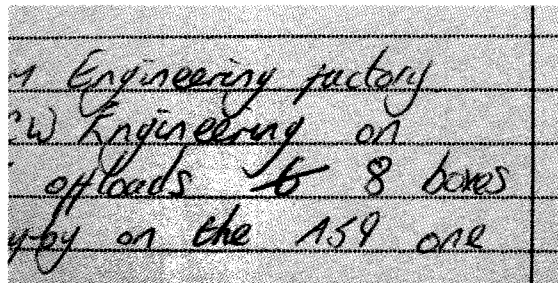 Engineering factory
CW Engineering on
offloads 8 boxes
y-by on the A59 one